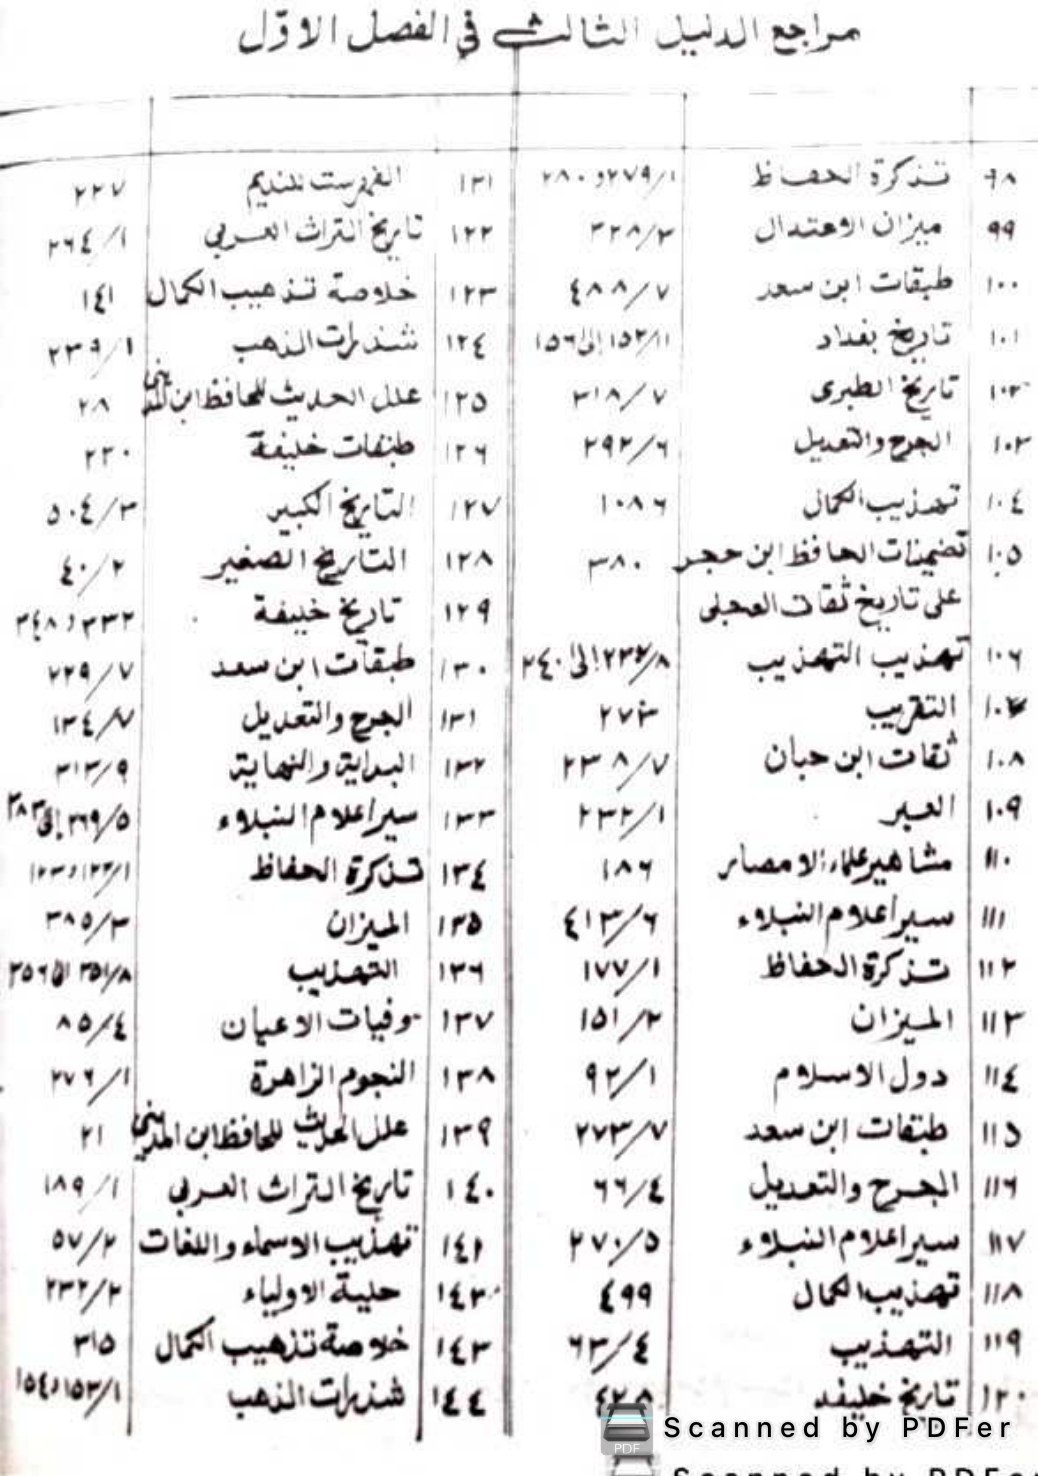 مراجع الدليل الثالث في الفصل الاوّل
٩٨ تذكرة الحفاظ ٢٧٩/١و٢٨٠
٩٩ ميزان الاعتدال ٣٢٨/٣
١٠٠ طبقات ابن سعد ٤٨٨/٧
١٠١ تاريخ بغداد ١٥٢/١١ إلى ١٥٦
١٠٢ تاريخ الطبرى ٣١٨/٧
١٠٣ الجرح والتعديل ٢٩٢/٦
١٠٤ تهذيب الكمال ١٠٨٦
١٠٥ تضمينات الحافظ ابن حجر ٣٨٠
على تاريخ ثقات العجلى
١٠٦ تهذيب التهذيب ٢٣٢/٨ إلى ٢٤٠
التقريب ٢٧٣
١٠٨ ثقات ابن حبان ٢٣٨/٧
١٠٩ العبر ٢٣٢/١
١١٠ مشاهير علماء الامصار ١٨٦
١١١ سير أعلام النبلاء ٤١٣/٦
١١٢ تذكرة الحفاظ ١٧٧/١
١١٣ الميزان ١٥١/٢
١١٤ دول الاسلام ٩٢/١
١١٥ طبقات ابن سعد ٢٧٣/٧
١١٦ الجرح والتعديل ٦٦/٤
١١٧ سير اعلام النبلاء ٢٧٠/٥
١١٨ تهذيب الكمال ٤٩٩
١١٩ التهذيب ٦٣/٤
١٢٠ تاريخ خليفة ٤٢٨
١٢١ الفهرست للنديم ٢٢٧
١٢٢ تاريخ التراث العربي ٢٦٤/١
١٢٣ خلاصة تذهيب الكمال ١٤١
١٢٤ شذرات الذهب ٢٣٩/١
١٢٥ علل الحديث للحافظ ابن المديني ٢٨
١٢٦ طبقات خليفة ٢٢٠
١٢٧ التاريخ الكبير ٥٠٤/٣
١٢٨ التاريخ الصغير ٤٠/٢
١٢٩ تاريخ خليفة ٣٣٢و٣٤٨
١٣٠ طبقات ابن سعد ٢٢٩/٧
١٣١ الجرح والتعديل ١٣٤/٧
١٣٢ البداية والنهاية ٣١٣/٩
١٣٣ سير اعلام النبلاء ٢٦٩/٥ إلى ٢٨٣
١٣٤ تذكرة الحفاظ ١٢٢/١و١٢٣
١٣٥ الميزان ٣٨٥/٣
١٣٦ التهذيب ٣٥١/٨ الى ٣٥٦
١٣٧ وفيات الاعيان ٨٥/٤
١٣٨ النجوم الزاهرة ٢٧٦/١
١٣٩ علل الحديث للحافظ ابن المديني ٢١
١٤٠ تاريخ التراث العربي ١٨٩/١
١٤١ تهذيب الاسماء واللغات ٥٧/٢
١٤٢ حلية الاولياء ٢٣٢/٢
١٤٣ خلاصة تذهيب الكمال ٣١٥
١٤٤ شذرات الذهب ١٥٣/١و١٥٤
PDF
Scanned by PDFer